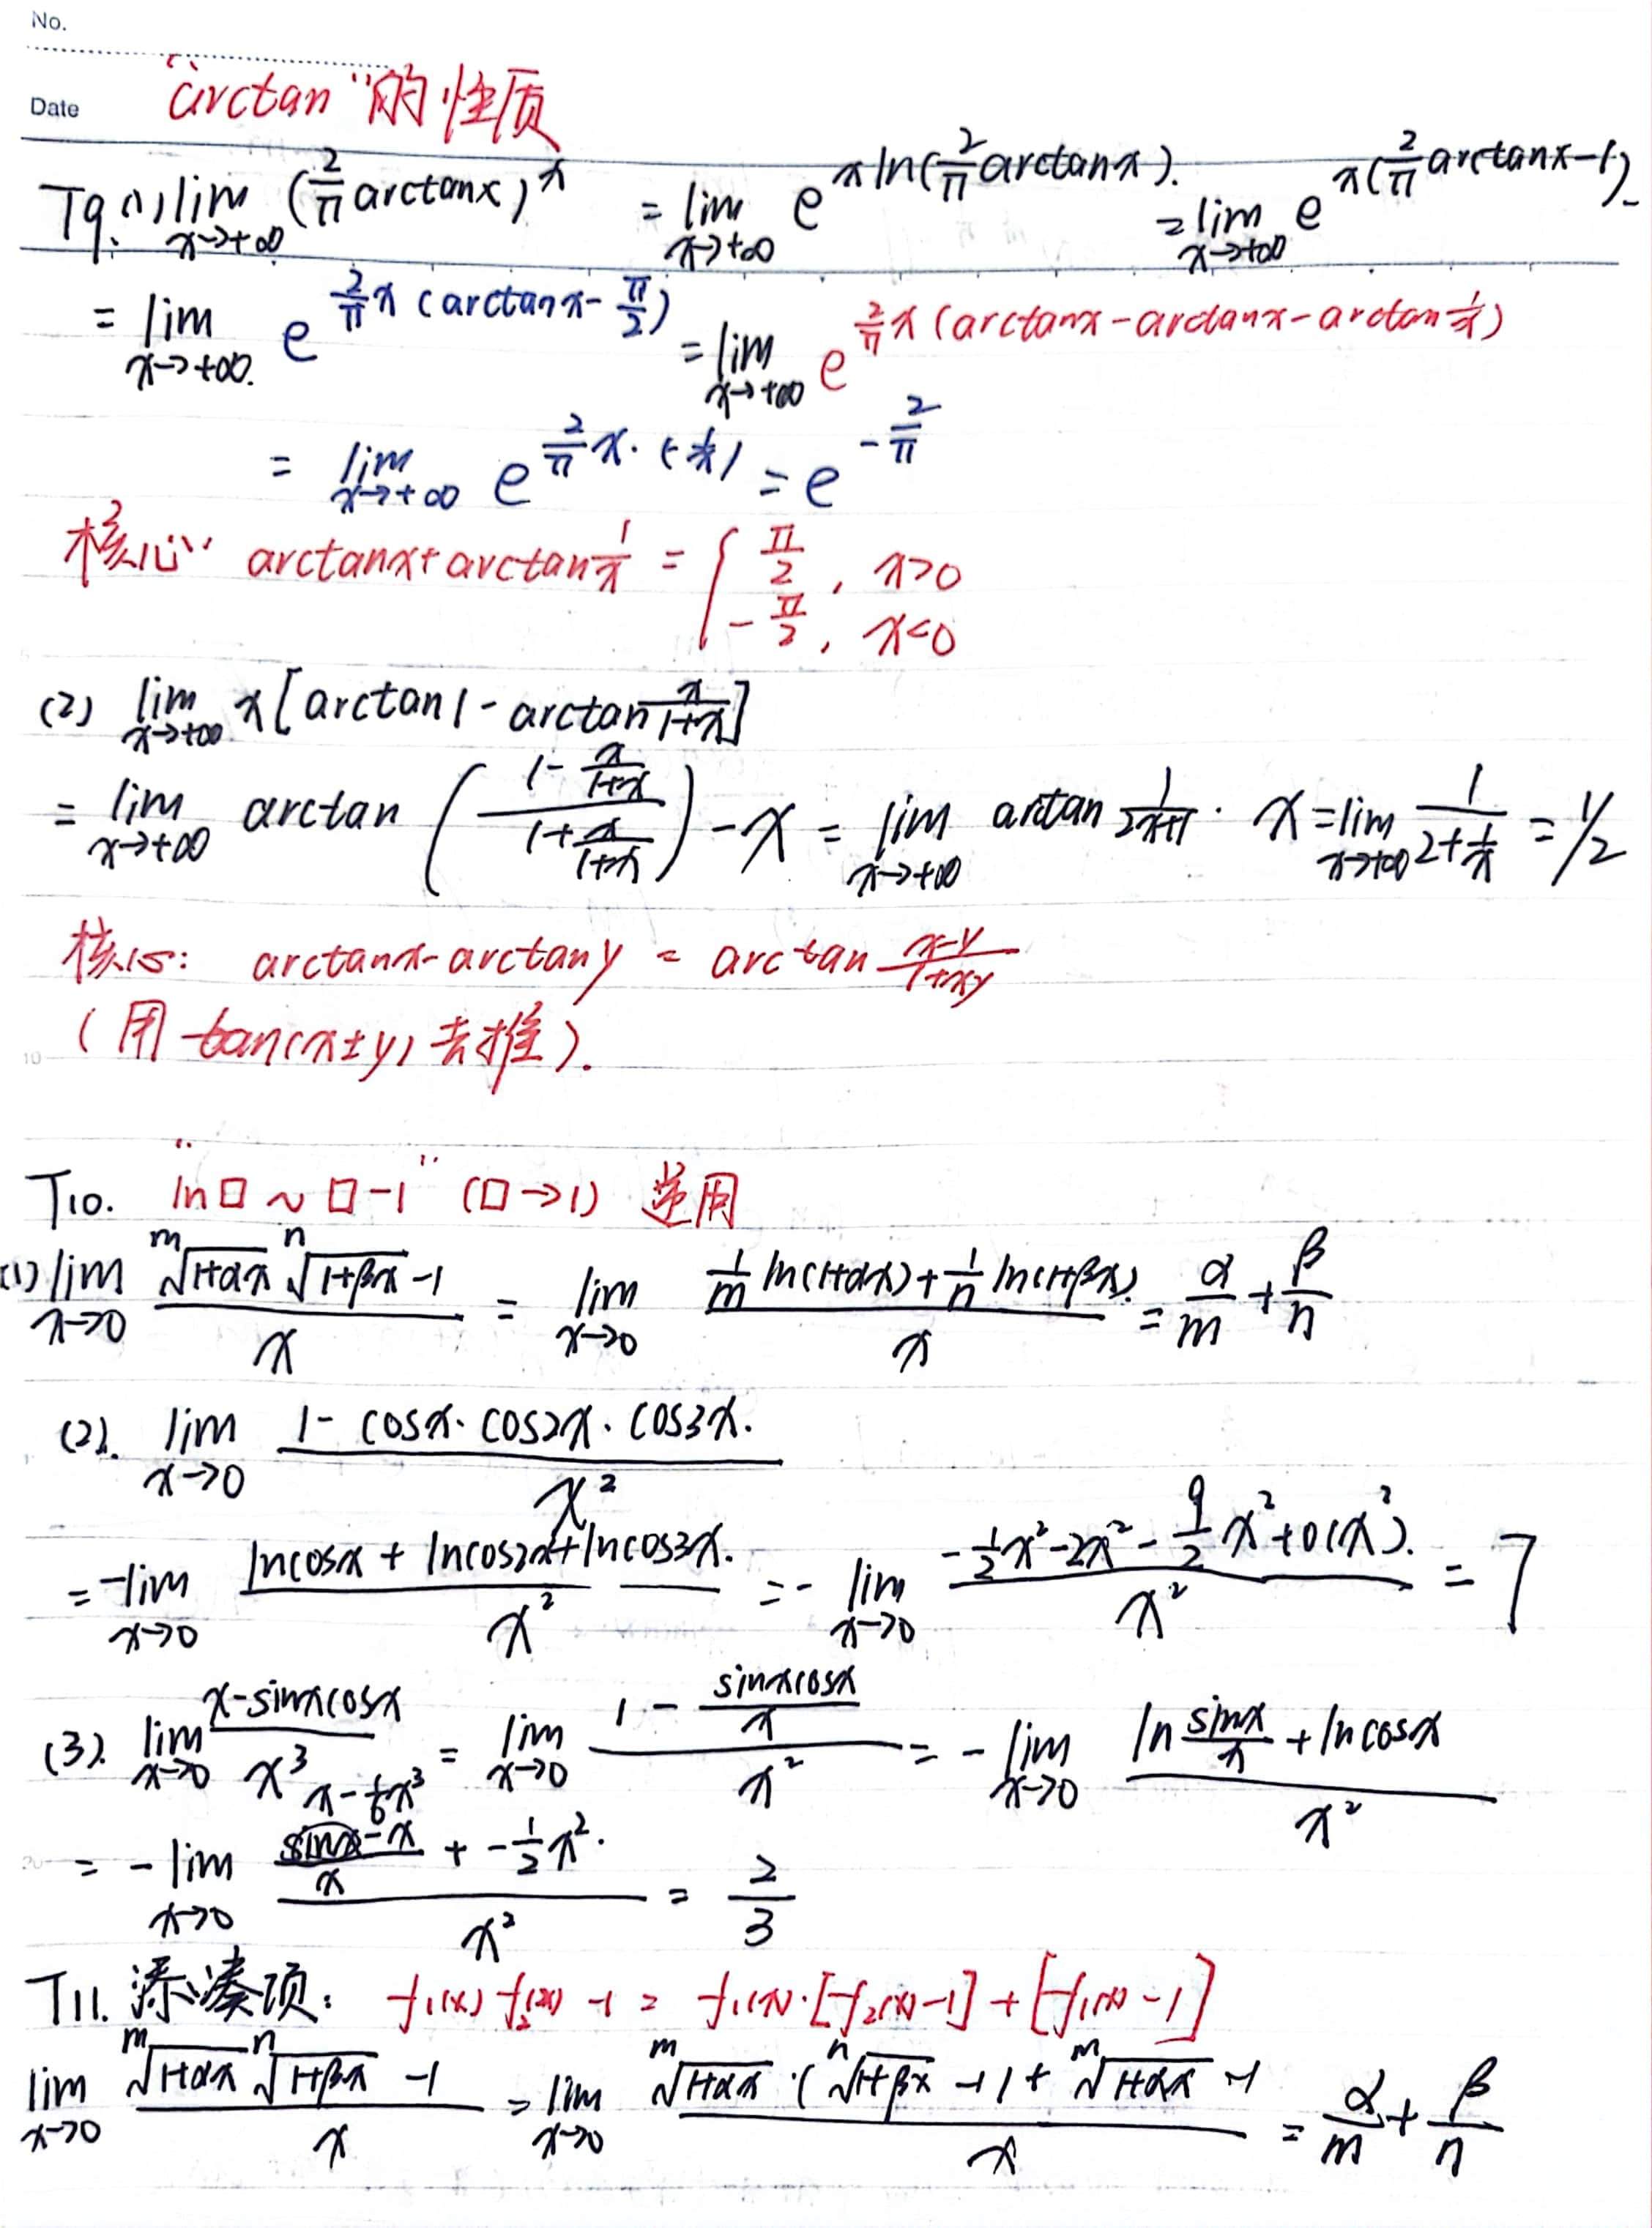 No.
Date
“arctan”的性质
T9. (1) lim_{x→+∞} (2/π arctanx)^x = lim_{x→+∞} e^{x ln(2/π arctanx)}. = lim_{x→+∞} e^{x(2/π arctanx-1)}.
= lim_{x→+∞} e^{2/π x (arctanx - π/2)} = lim_{x→+∞} e^{2/π x (arctanx - arctanx - arctan 1/x)}
= lim_{x→+∞} e^{2/π x · (-1/x)} = e^{-2/π}
核心: arctanx + arctan 1/x = { π/2, x>0
-π/2, x<0
(2) lim_{x→+∞} x[arctan1 - arctan x/(1+x)]
= lim_{x→+∞} arctan ((1 - x/(1+x))/(1 + x/(1+x))) - x = lim_{x→+∞} arctan 1/(2x+1) · x = lim_{x→+∞} 1/(2+1/x) = 1/2
核心: arctanx - arctany = arctan (x-y)/(1+xy)
(用 tan(x±y) 去推).
10
T10. “ln□ ~ □-1” (□→1) 逆用
(1) lim_{x→0} (ᵐ√(1+αx) ⁿ√(1+βx) -1)/x = lim_{x→0} (1/m ln(1+αx) + 1/n ln(1+βx))/x = α/m + β/n
(2). lim_{x→0} (1 - cosx · cos2x · cos3x.)/x²
= -lim_{x→0} (lncosx + lncos2x + lncos3x.)/x² = - lim_{x→0} (-1/2x² - 2x² - 9/2 x² + o(x²).)/x² = 7
(3). lim_{x→0} (x - sinxcosx)/x³ = lim_{x→0} (1 - sinxcosx/x)/x² = - lim_{x→0} (ln sinx/x + lncosx)/x²
x - 1/6x³
= - lim_{x→0} ((sinx - x)/x + -1/2x².)/x² = 2/3
T11. 添凑项: f₁(x) f₂(x) -1 = f₁(x)·[f₂(x)-1] + [f₁(x)-1]
lim_{x→0} (ᵐ√(1+αx) ⁿ√(1+βx) -1)/x = lim_{x→0} (ᵐ√(1+αx) · (ⁿ√(1+βx) -1) + ᵐ√(1+αx) -1)/x = α/m + β/n